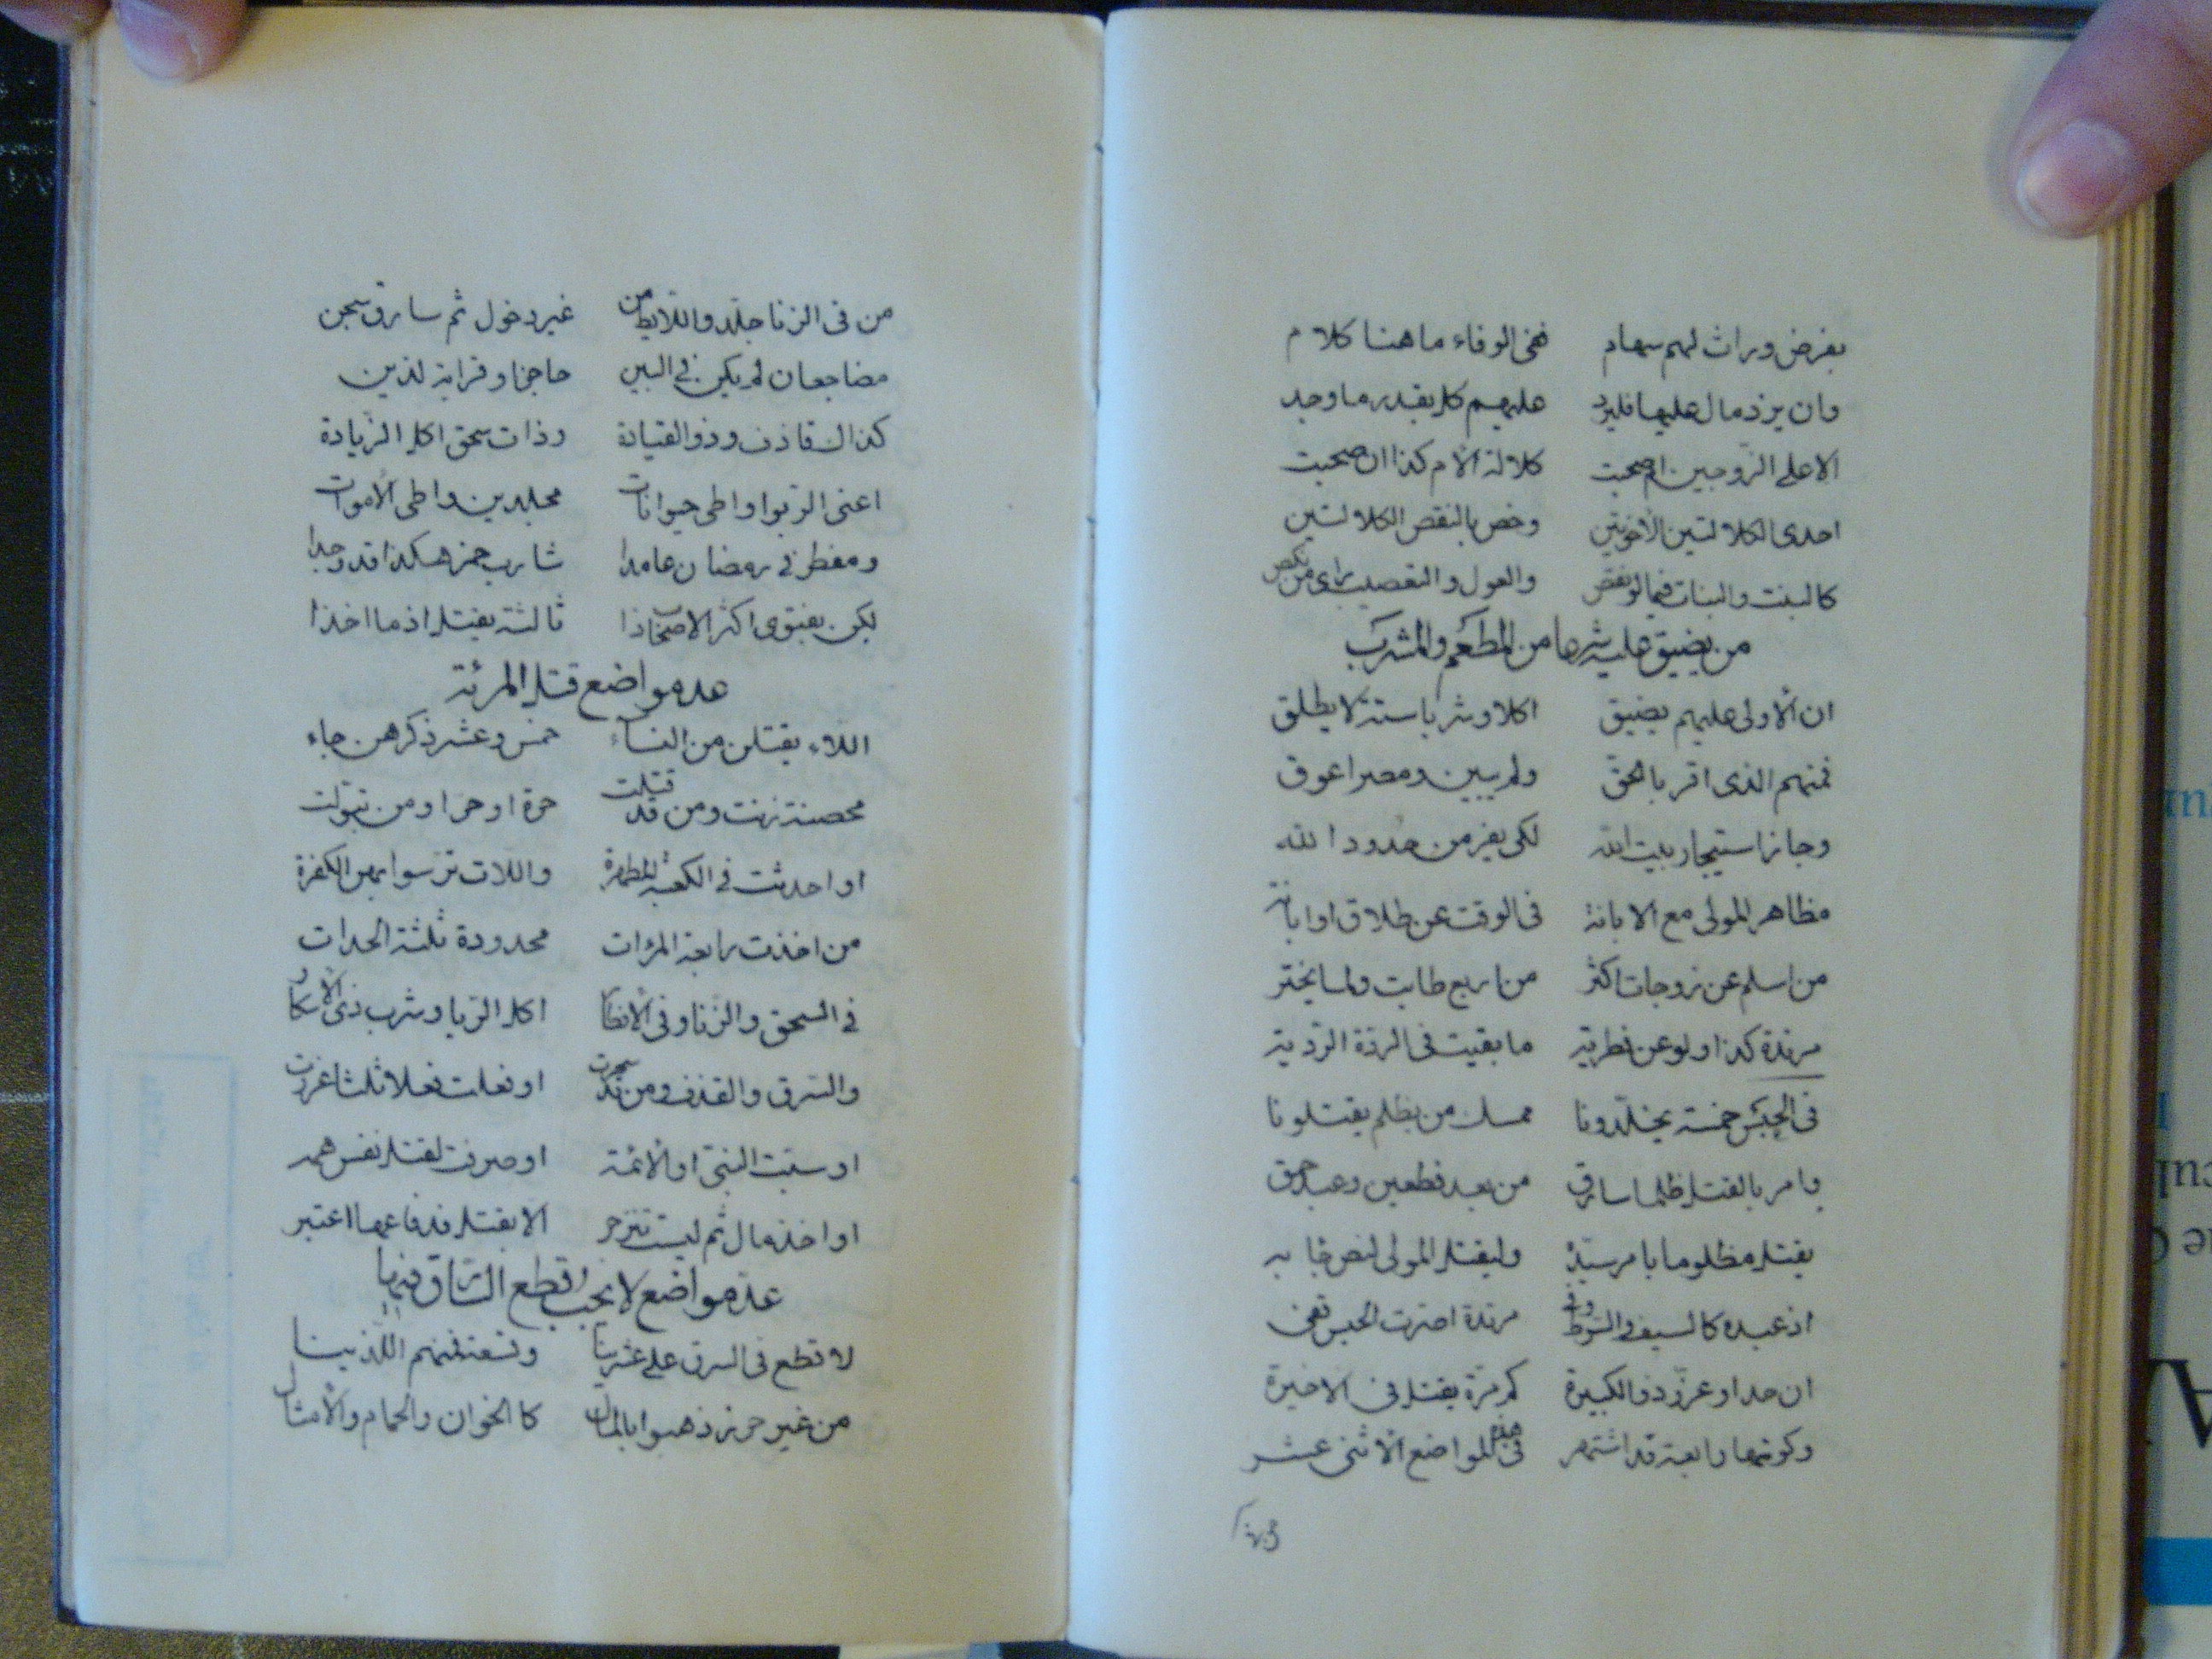 بفرض وراث لهم سهام ففى الوفاء ما هنا كلام
وان يزد مال عليها فليرد عليهم كل بقدر ما وجد
الا على الزوجين ان صحبت كلالة الام كذا ان صحبت
احدى الكلالتين الاخوتين وخص بالنقص الكلالتين
كالبنت والبنات فيما لو نقص والعول والتعصيب راى من نكص
من يضيق عليه شرعا من المطعم والمشرب
ان الاولى عليهم يضيق اكلا وشربا ستة لا يطلق
فمنهم الذى اقر بالحق ولم يبين ومصرا عوق
وجان استجار ببيت الله لكى يفر من حدود الله
مظاهر المولى مع الابانة فى الوقت عن طلاق او ابانة
من اسلم عن زوجات اكثر من اربع طابت ولما يختر
مرتدة كذا ولو عن فطرية ما بقيت فى الردة الردية
فى الحبس خمسة يخلدونا ممسك من بظلم يقتلونا
وامر بالقتل ظلما سارق من بعد قطعين وعبد
يقتل مظلوما بامر سيده وليقتل المولى لنص جا به
اذ عبده كالسيف والسوط وفى مرتدة اخرت الحبس تفى
ان حد او عزر ذو الكبيرة كم مرة يقتل فى الاخيرة
وكونها رابعة قد اشتهر فى هذه المواضع الاثنى عشر
من فى الزنا جلد واللايط من غير دخول ثم سارق سجن
مضاجعان لم يكن فى البين حاجز او قرابة لذين
كذاك قاذف وذو القيادة وذات سحق اكل الزيادة
اعنى الربوا واطى حيوانات مجلدين واطى الاموات
ومفطر فى رمضان عامدا شارب خمر هكذا قد وجدا
لكن بفتوى اكثر الاصحاب ذا ثالثة يقتل اذ ما اخذا
عدة مواضع قتل المرئة
اللاء يقتلن من النساء خمس وعشر ذكرهن جاء
محصنة زنت ومن قد قتلت حرة او حرا ومن
او احدثت فى الكعبة المطهرة واللات ترسوا بهن الكفرة
من اخذت رابعة المرات محدودة ثلثة الحدات
فى السحق والزنا وفى الافطار اكل الربا وشرب ذى الاسكار
والسرق والقذف ومن قد سحرت او فعلت فعلا ثلثا عزرت
او سبت النبى او الائمة او صرفت لقتل نفس همه
او اخذ مال ثم ليست تنزجر الا بقتل فدفاعها اعتبر
عدة مواضع لا يجب قطع السارق فيها
لا قطع فى السرق على عشرينا وتسعة فمنهم اللذينا
من غير حرز ذهبوا بالمال كالخوان والحمام والامثال